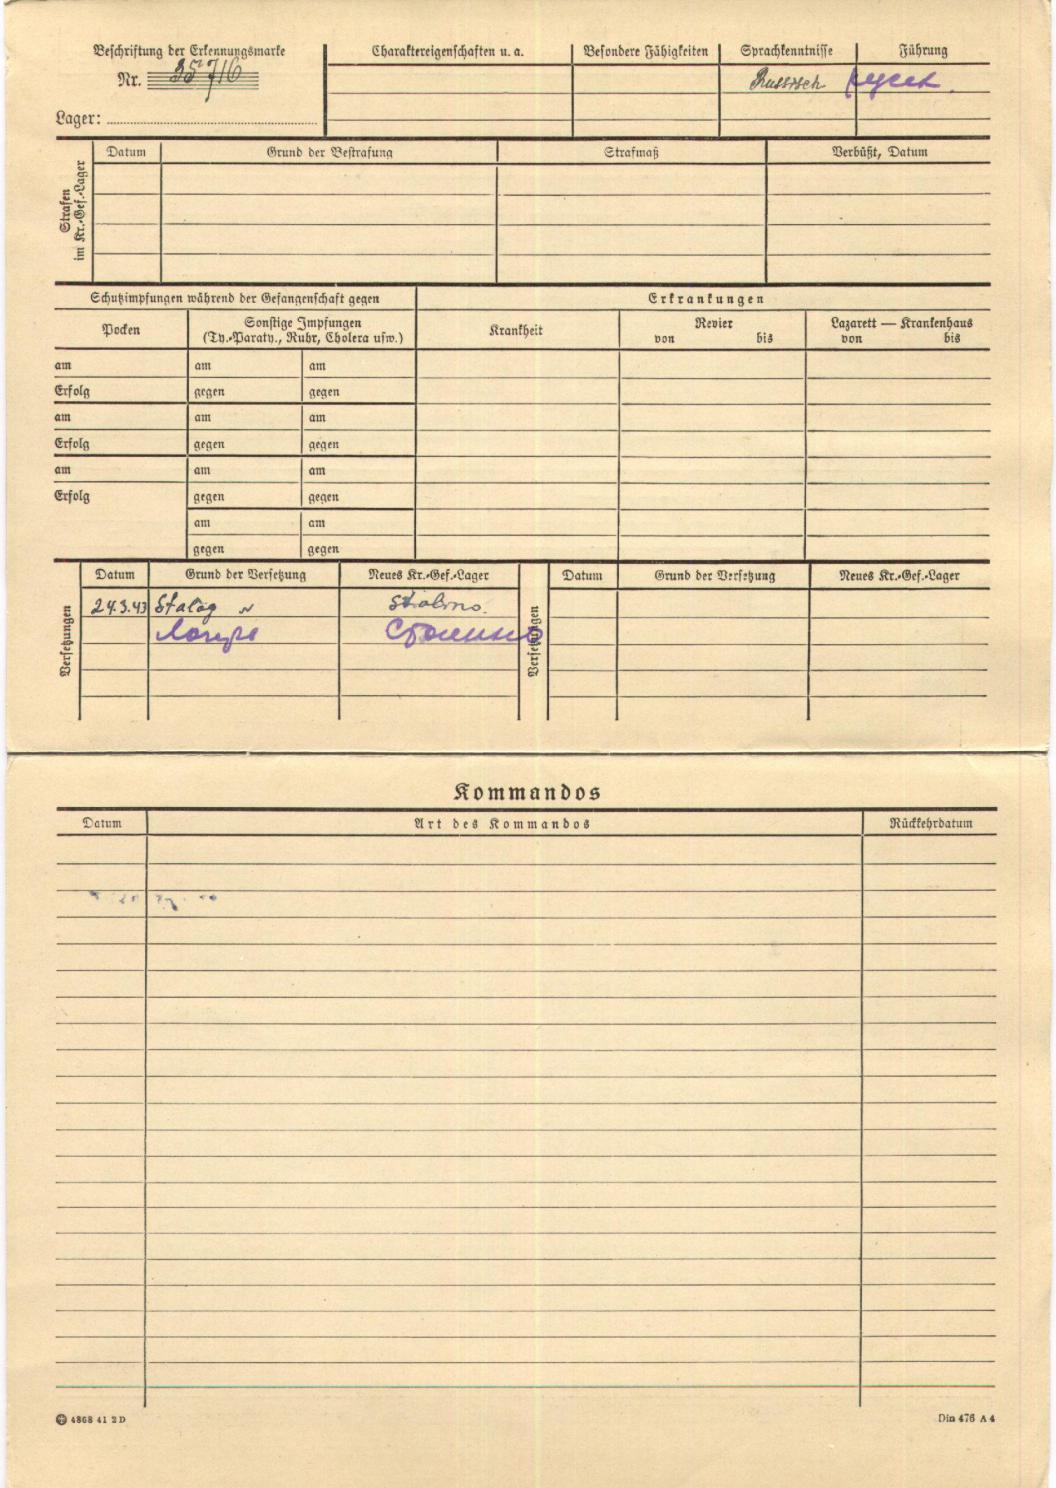 Beschriftung der Erkennungsmarke
Nr. 35716
Lager:
Charaktereigenschaften u. a.
Besondere Fähigkeiten
Sprachkenntnisse
Führung
Russisch
русск.
Strafen im Kr.-Gef.-Lager
Datum
Grund der Bestrafung
Strafmaß
Verbüßt, Datum
Schutzimpfungen während der Gefangenschaft gegen
Erkrankungen
Pocken
Sonstige Impfungen
(Ty.-Paraty., Ruhr, Cholera usw.)
Krankheit
Revier
von bis
Lazarett — Krankenhaus
von bis
am am am
Erfolg gegen gegen
am am am
Erfolg gegen gegen
am am am
Erfolg gegen gegen
am am
gegen gegen
Versetzungen
Datum Grund der Versetzung Neues Kr.-Gef.-Lager
24.3.43 Stalag
Versetzungen
Datum Grund der Versetzung Neues Kr.-Gef.-Lager
Kommandos
Datum Art des Kommandos Rückkehrdatum
4868 41 2 D
Din 476 A 4